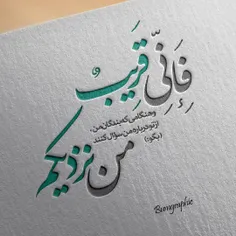 فَإِنِّي قَرِيبٌ
وهنگامی که بندگان من،
از تو درباره من سؤال کنند
(بگو:)
من نزدیکم
Buragraphic